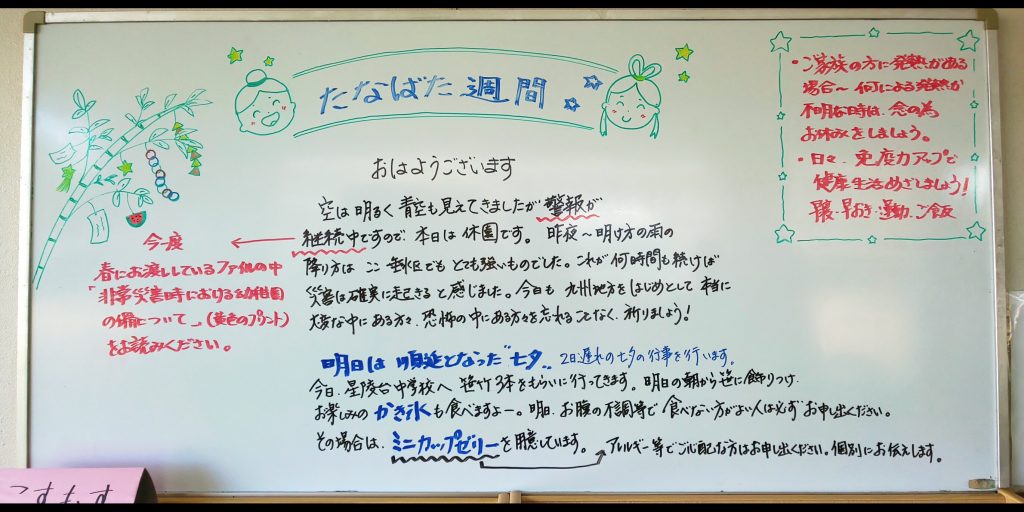 たなばた週間
おはようございます
空は明るく青空も見えてきましたが警報が
継続中ですので、本日は休園です。昨夜〜明け方の雨の
降り方は ここ垂水区でもとても強いものでした。これが何時間も続けば
災害は確実に起きると感じました。今日も 九州地方をはじめとして 本当に
大変な中にある方々、恐怖の中にある方々を忘れることなく、祈りましょう!
明日は 順延となった"七夕" 2日遅れの七夕の行事を行います。
今日、星陵台中学校へ 笹竹3本をもらいに行ってきます。明日の朝から笹に飾りつけ
お楽しみの かき氷も食べますよー。明日、お腹の不調等で 食べない方がよい人は必ず お申し出ください。
その場合は、ミニカップゼリーを用意しています。
アレルギー等でご心配な方はお申し出ください。個別にお伝えします。
今一度
春にお渡ししているファイルの中
「非常災害時における幼稚園
の備について」(黄色のプリント)
をお読みください。
・ご家族の方に発熱がある
場合〜何による発熱か
不明な時は、念の為
お休みをしましょう。
・日々、免疫力アップで
健康生活めざしましょう!
早寝・早おき・運動、ご飯
こすもす